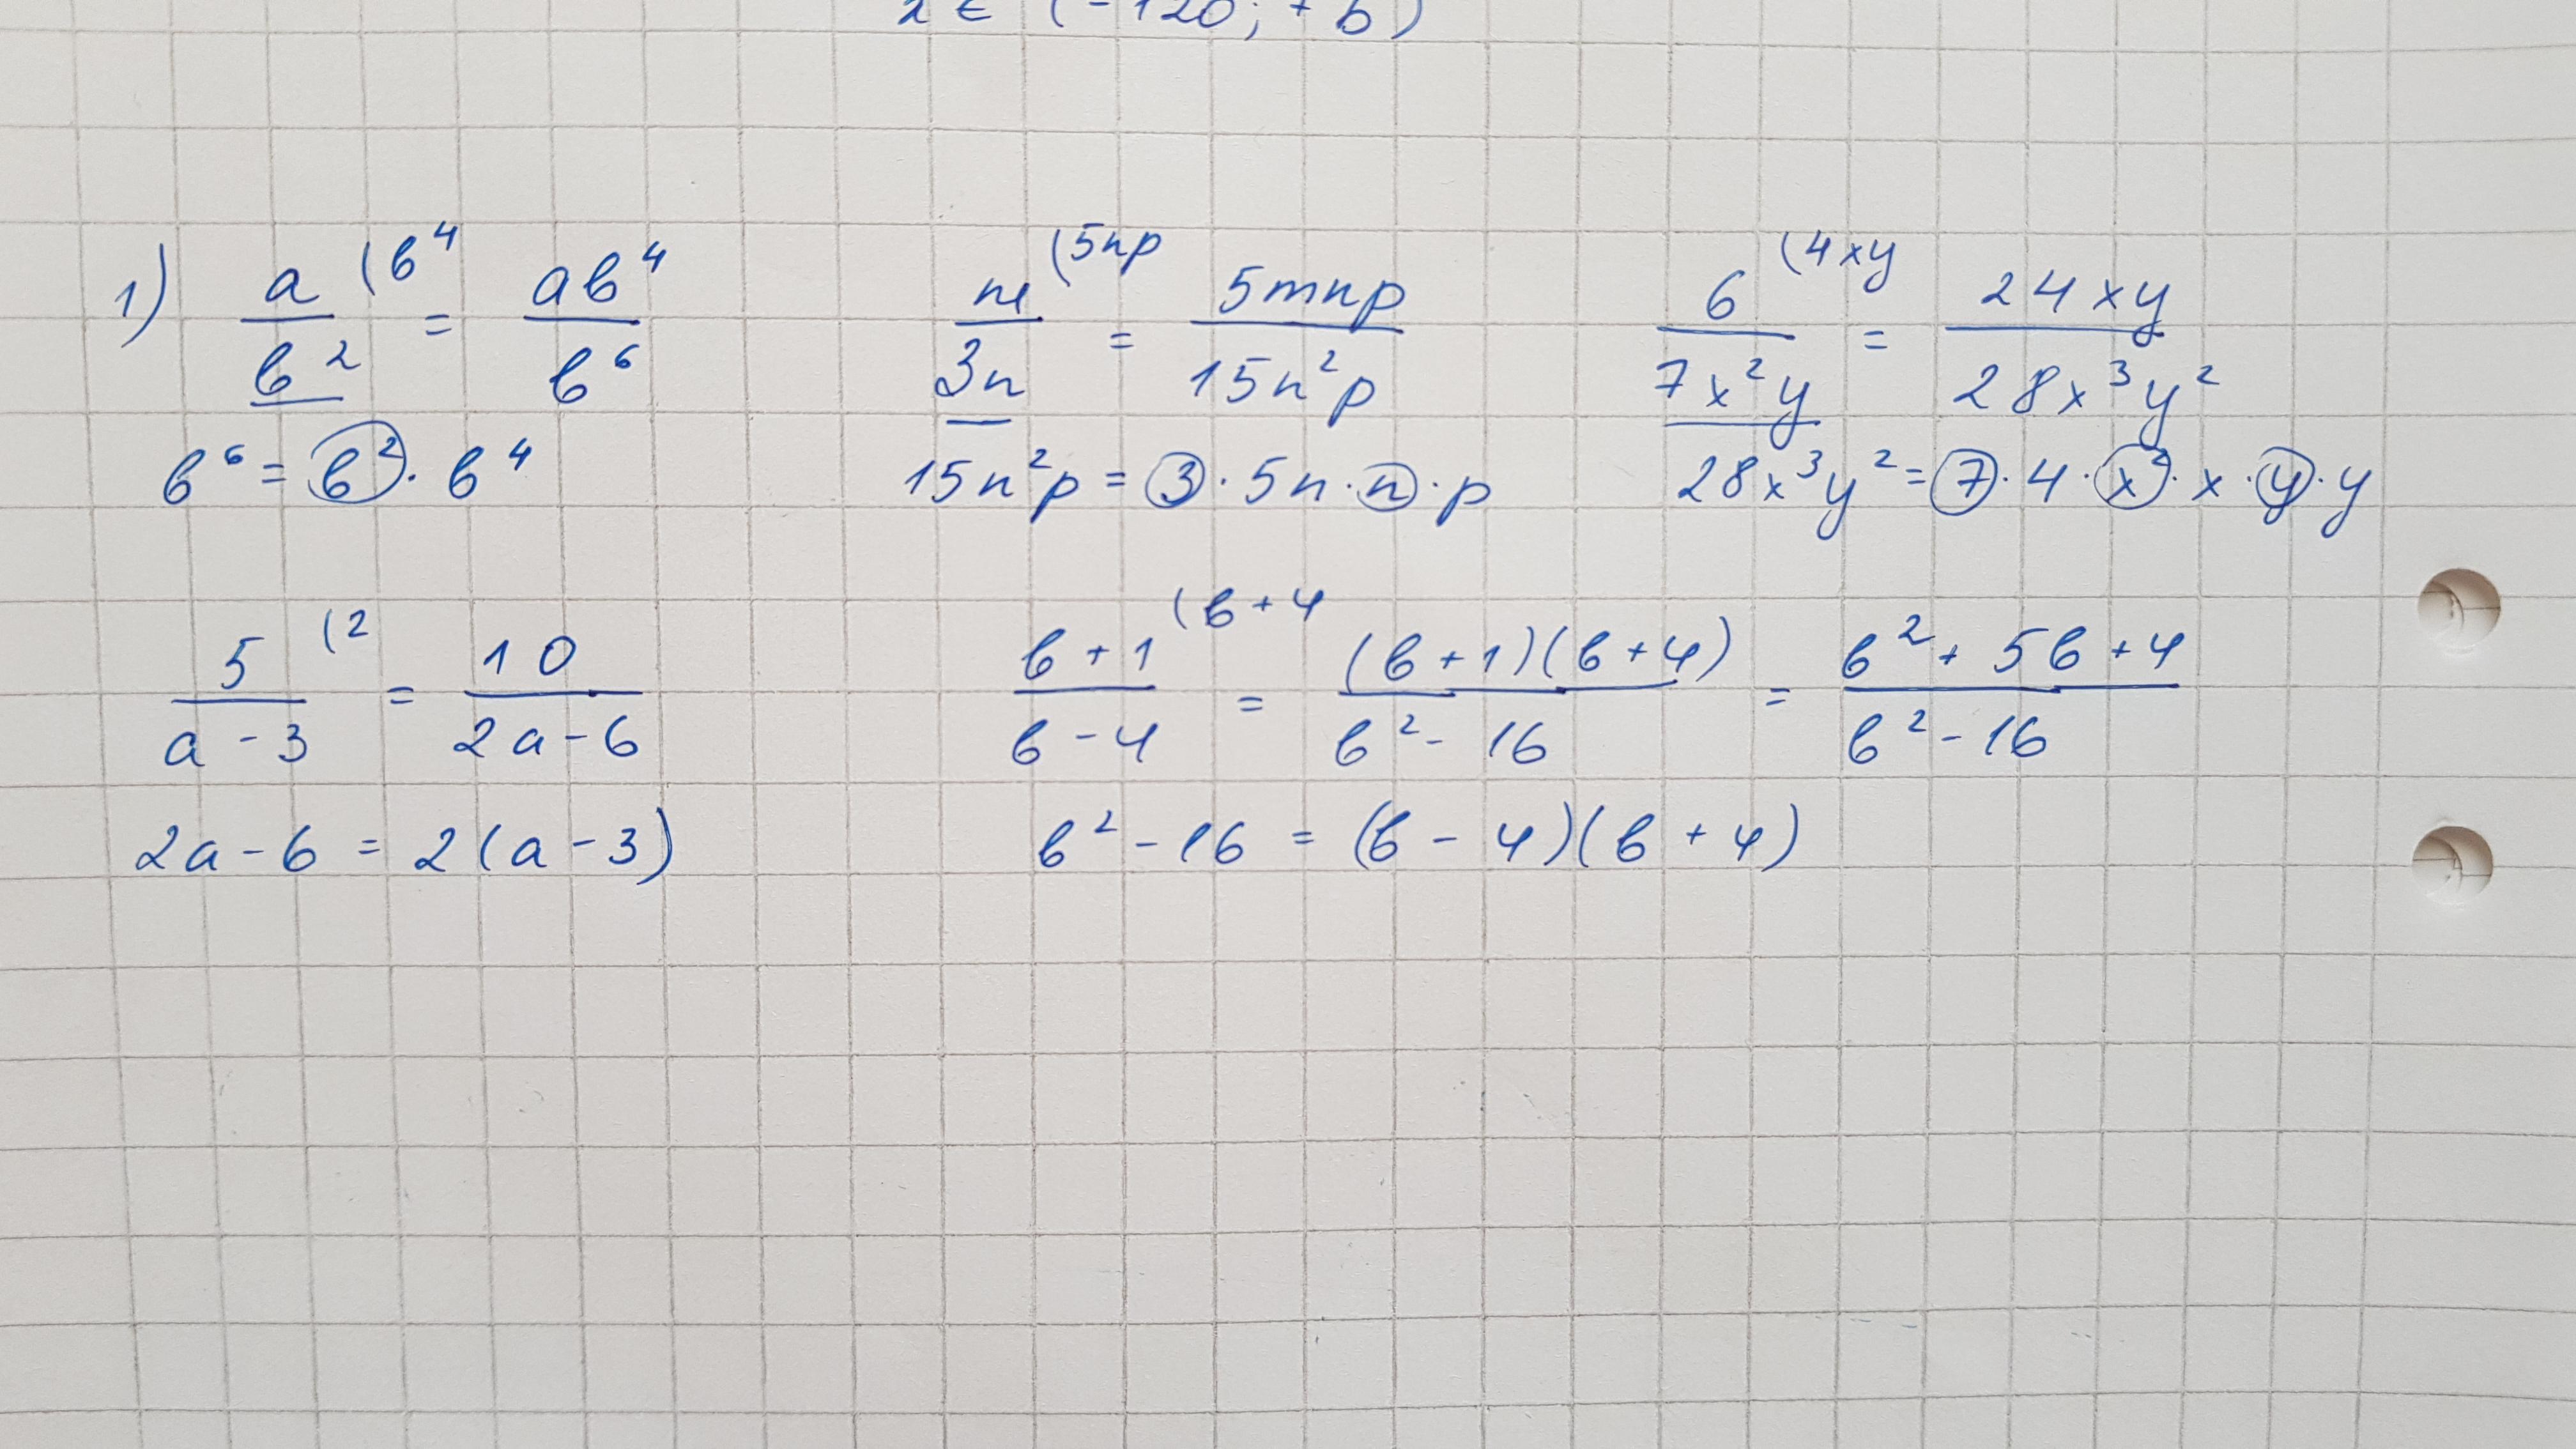 1) a/b² (b⁴ = ab⁴/b⁶
b⁶ = b² · b⁴
m/3n (5np = 5mnp/15n²p
15n²p = 3 · 5n · n · p
6/7x²y (4xy = 24xy/28x³y²
28x³y² = 7 · 4 · x² · x · y · y
5/a-3 (2 = 10/2a-6
2a-6 = 2(a-3)
b+1/b-4 (b+4 = (b+1)(b+4)/b²-16 = b²+5b+4/b²-16
b²-16 = (b-4)(b+4)